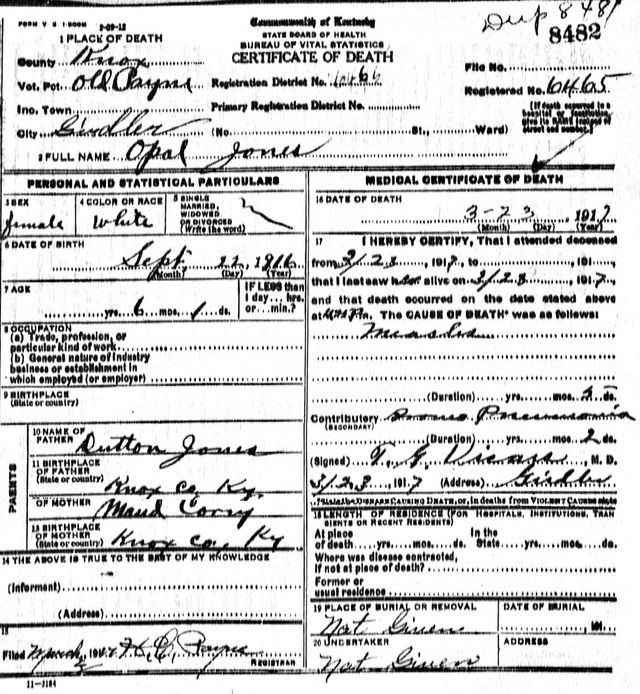 FORM V. S. 1-500M 2-09-12
Commonwealth of Kentucky
STATE BOARD OF HEALTH
BUREAU OF VITAL STATISTICS
CERTIFICATE OF DEATH
Dup 8481
8482
1 PLACE OF DEATH
County Knox
Vot. Pct. Old Payne Registration District No.
Inc. Town Primary Registration District No.
City Girdler (No. St., Ward)
File No.
Registered No. 6465
(If death occurred in a hospital or institution, give its NAME instead of street and number.)
2 FULL NAME Opal Jones
PERSONAL AND STATISTICAL PARTICULARS
3 SEX female
4 COLOR OR RACE White
5 SINGLE MARRIED, WIDOWED OR DIVORCED (Write the word)
6 DATE OF BIRTH
Sept 22, 1916
(Month) (Day) (Year)
7 AGE
yrs. 6 mos. 1 ds.
IF LESS than 1 day... hrs. or... min.?
8 OCCUPATION
(a) Trade, profession, or particular kind of work
(b) General nature of industry business or establishment in which employed (or employer)
9 BIRTHPLACE
(State or country)
PARENTS
10 NAME OF FATHER Dutton Jones
11 BIRTHPLACE OF FATHER (State or country) Knox Co, Ky.
OF MOTHER Maud
13 BIRTHPLACE OF MOTHER (State or country) Knox Co, Ky
14 THE ABOVE IS TRUE TO THE BEST OF MY KNOWLEDGE
(Informant)
(Address)
15
Filed H. C. Payne
REGISTRAR
11-3184
MEDICAL CERTIFICATE OF DEATH
16 DATE OF DEATH
3-23, 1917
(Month) (Day) (Year)
17 I HEREBY CERTIFY, That I attended deceased
from 3/23, 1917, to 191
that I last saw her alive on 3/23, 1917,
and that death occurred on the date stated above
at M. The CAUSE OF DEATH was as follows:
Measles
(Duration) yrs. mos. 5 ds.
Contributory Pneumonia
(SECONDARY)
(Duration) yrs. mos. 2 ds.
(Signed) T. G. M. D.
3/23, 1917 (Address) Girdler
State the DISEASE CAUSING DEATH, or, in deaths from VIOLENT CAUSES state
18 LENGTH OF RESIDENCE (FOR HOSPITALS, INSTITUTIONS, TRANSIENTS OR RECENT RESIDENTS)
At place of death yrs. mos. ds. In the State yrs. mos. ds.
Where was disease contracted, if not at place of death?
Former or usual residence
19 PLACE OF BURIAL OR REMOVAL Not Given
DATE OF BURIAL
191
20 UNDERTAKER Not Given
ADDRESS